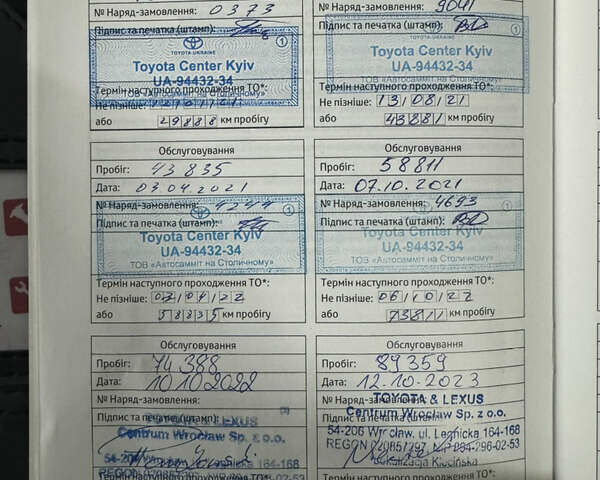 № Наряд-замовлення: 0373
Підпис та печатка (штамп):
TOYOTA-UKRAINE
1
Toyota Center Kyiv
UA-94432-34
Термін наступного проходження ТО*:
ТОВ «Автосамміт на Столичному»
Не пізніше:
або 29888 км пробігу
№ Наряд-замовлення: 9041
Підпис та печатка (штамп):
1
Toyota Center Kyiv
UA-94432-34
Термін наступного проходження ТО*:
ТОВ «Автосамміт на Столичному»
Не пізніше: 13/08/21
або 43881 км пробігу
Обслуговування
Пробіг: 43 835
Дата: 03.04.2021
№ Наряд-замовлення:
Підпис та печатка (штамп):
1
Toyota Center Kyiv
UA-94432-34
ТОВ «Автосамміт на Столичному»
Термін наступного проходження ТО*:
Не пізніше: 03/04/22
або 58835 км пробігу
Обслуговування
Пробіг: 58811
Дата: 07.10.2021
№ Наряд-замовлення: 4693
Підпис та печатка (штамп):
1
Toyota Center Kyiv
UA-94432-34
ТОВ «Автосамміт на Столичному»
Термін наступного проходження ТО*:
Не пізніше: 06/10/22
або 73811 км пробігу
Обслуговування
Пробіг: 74 388
Дата: 10.10.2022
№ Наряд-замовлення:
Підпис та печатка (штамп):
TOYOTA & LEXUS
Centrum Wrocław Sp. z o.o.
54-206 Wrocław, ul. Legnicka 164-168
Обслуговування
Пробіг: 89359
Дата: 12-10-2023
TOYOTA & LEXUS
№ Наряд-замовлення:
Centrum Wrocław Sp. z o.o.
Підпис та печатка (штамп):
54-206 Wrocław, ul. Legnicka 164-168